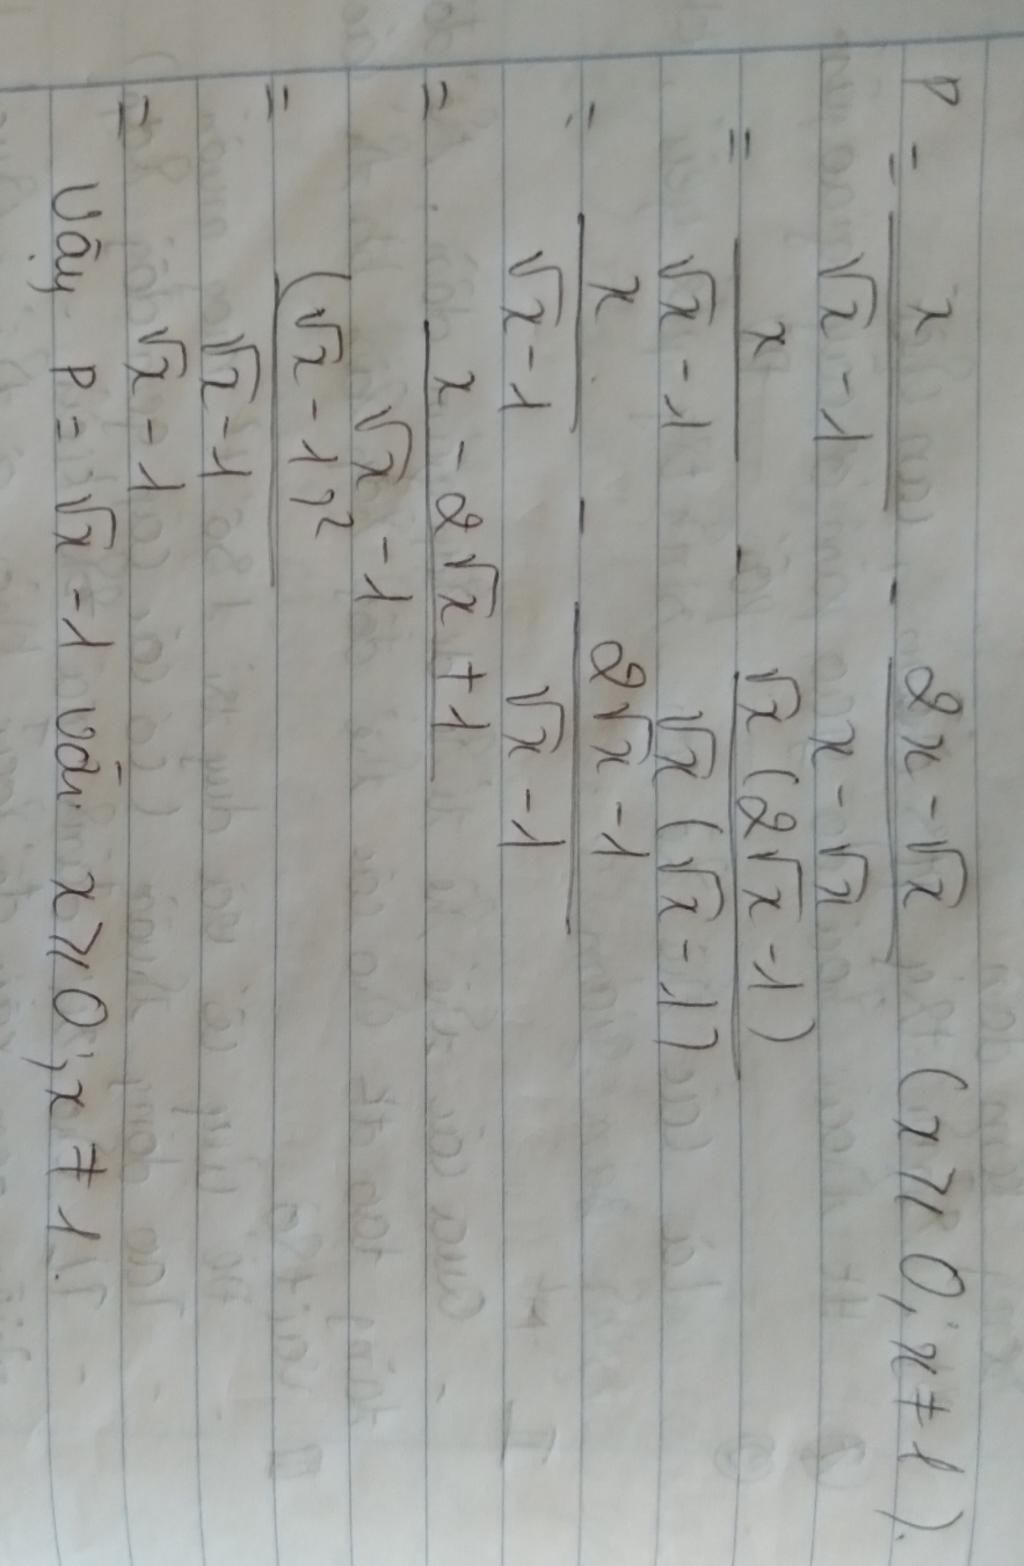 P = x/(√x - 1) - (2x - √x)/(x - √x) (x ⩾ 0; x ≠ 1).
= x/(√x - 1) - √x(2√x - 1)/(√x(√x - 1))
= x/(√x - 1) - (2√x - 1)/(√x - 1)
= (x - 2√x + 1)/(√x - 1)
= (√x - 1)²/(√x - 1)
= √x - 1
Vậy P = √x - 1 với x ⩾ 0; x ≠ 1.